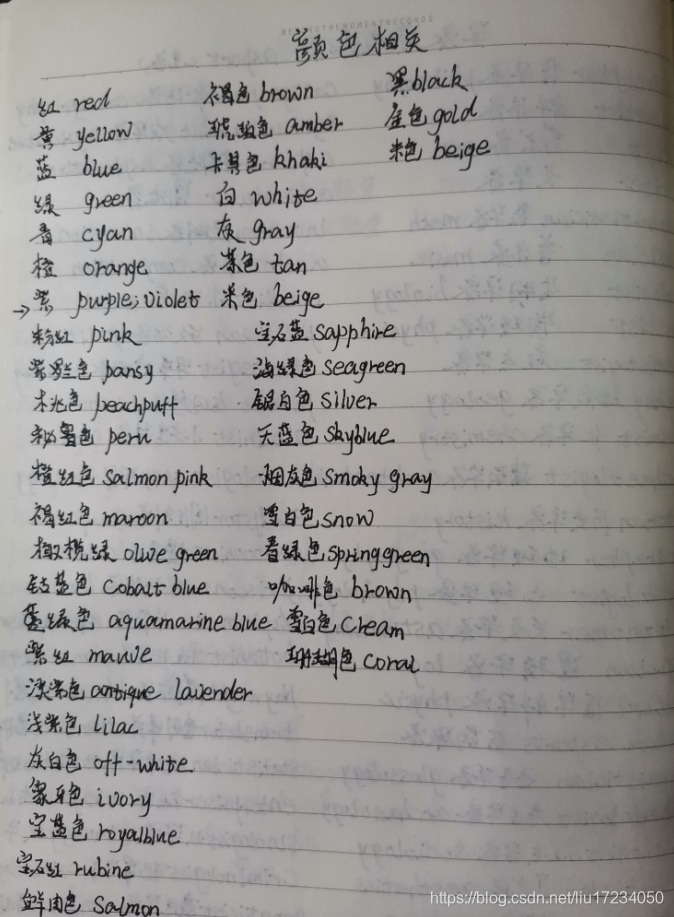 颜色相关
红 red 褐色 brown 黑 black
黄 yellow 琥珀色 amber 金色 gold
蓝 blue 卡其色 khaki 米色 beige
绿 green 白 white
青 cyan 灰 gray
橙 orange 茶色 tan
→ 紫 purple; violet 米色 beige
粉红 pink 宝石蓝 sapphire
紫罗兰色 pansy 海绿色 seagreen
木兆色 peachpuff 银白色 silver
秘鲁色 peru 天蓝色 skyblue
橙红色 salmon pink 烟灰色 smoky gray
褐红色 maroon 雪白色 snow
橄榄绿 olive green 春绿色 springgreen
钴蓝色 cobalt blue 咖啡色 brown
蓝绿色 aquamarine blue 雪白色 cream
紫红 mauve 珊瑚色 coral
淡紫色 antique lavender
浅紫色 lilac
灰白色 off-white
象牙色 ivory
宝蓝色 royalblue
宝石红 rubine
鲜肉色 salmon
https://blog.csdn.net/liu17234050